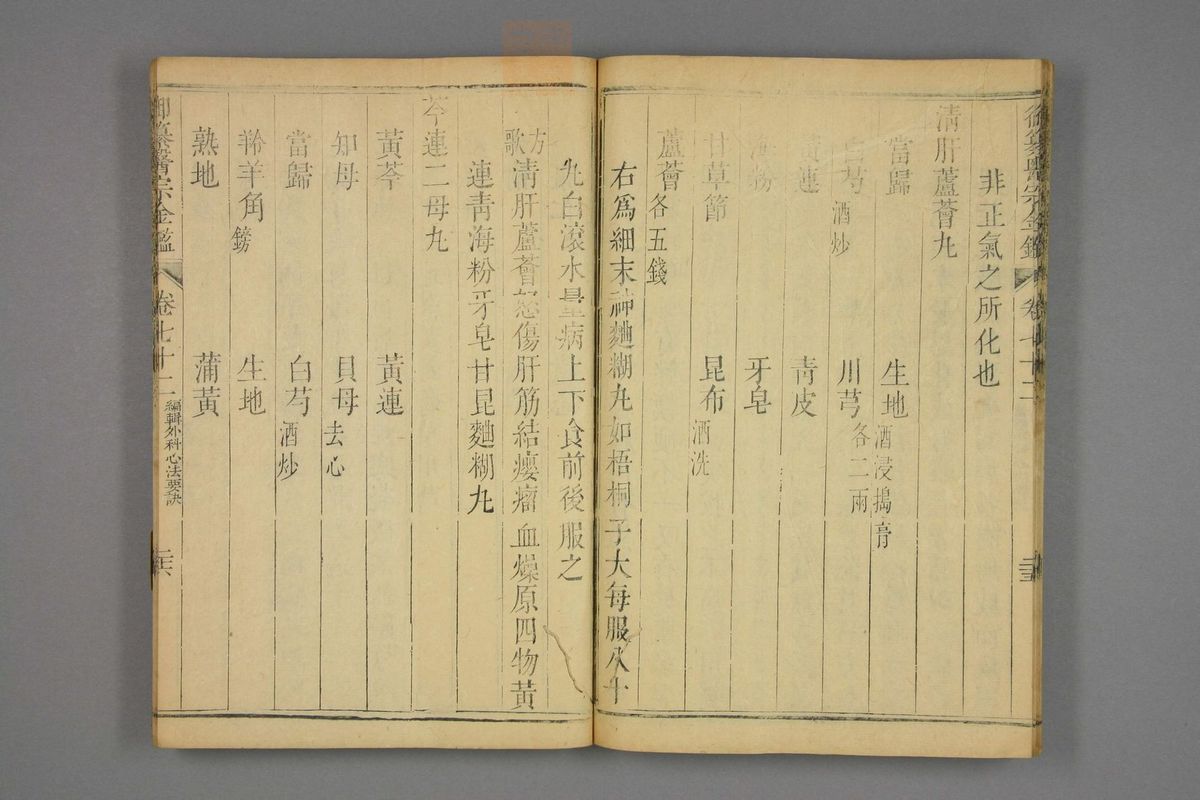 御纂醫宗金鑑 卷七十二
非正氣之所化也
清肝蘆薈丸
當歸 生地酒浸搗膏
白芍酒炒 川芎各二兩
黃連 青皮
海粉 牙皂
甘草節 昆布酒洗
蘆薈各五錢
右為細末神麯糊丸如梧桐子大每服八十
丸白滾水量病上下食前後服之
方歌 清肝蘆薈怒傷肝筋結癭瘤血燥原四物黃
連青海粉牙皂甘昆麯糊丸
芩連二母丸
黃芩 黃連
知母 貝母去心
當歸 白芍酒炒
羚羊角鎊 生地
熟地 蒲黃
御纂醫宗金鑑 卷七十二 編輯外科心法要訣 二六